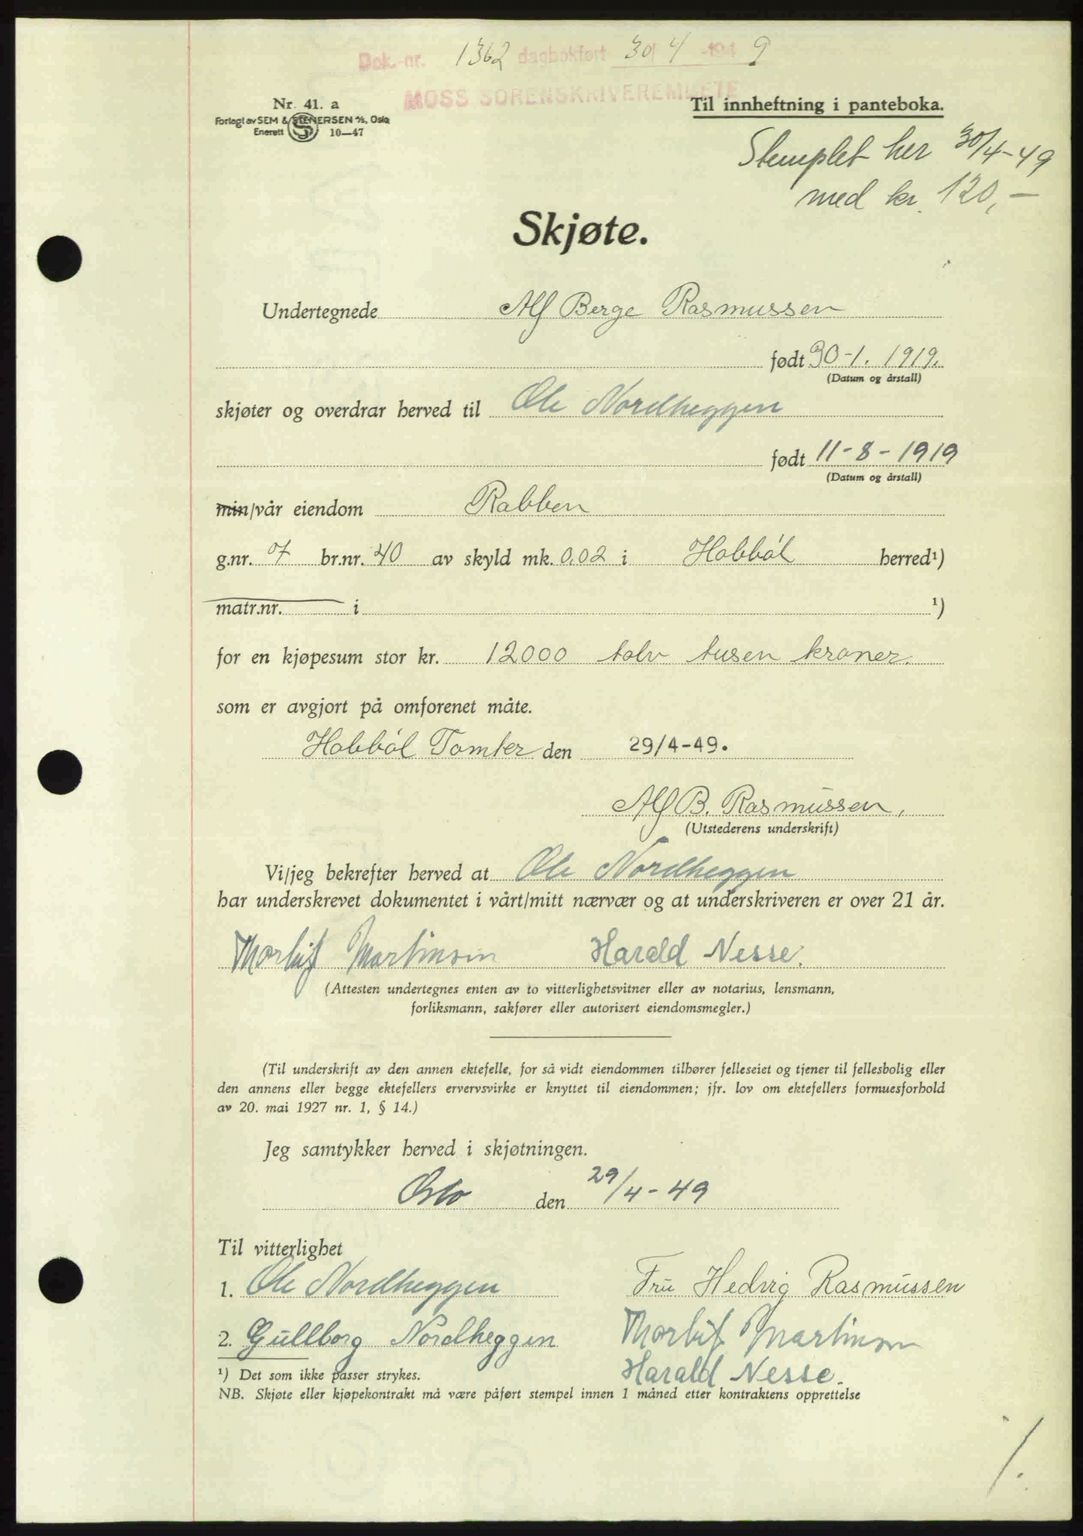 Dok.-nr. 1362 dagbokført 30/4-1949
MOSS SORENSKRIVEREMBETE
Nr. 41. a
Forlagt av SEM & STENERSEN A/S, Oslo
Enerett 10—47
Til innheftning i panteboka.
Stemplet her 30/4-49
med kr. 120,-
Skjøte.
Undertegnede Alf Berge Rasmussen
født 30-1. 1919.
(Datum og årstall)
skjøter og overdrar herved til Ole Nordheggen
født 11-8-1919
(Datum og årstall)
min/vår eiendom Rabben
g.nr. 7 br.nr. 40 av skyld mk. 0.02 i Hobbøl herred¹)
matr.nr. i ¹)
for en kjøpesum stor kr. 12000 tolv tusen kroner.
som er avgjort på omforenet måte.
Hobbøl Tomter den 29/4-49.
Alf B. Rasmussen,
(Utstederens underskrift)
Vi/jeg bekrefter herved at Ole Nordheggen
har underskrevet dokumentet i vårt/mitt nærvær og at underskriveren er over 21 år.
Thorleif Martinsen Harald Nesse.
(Attesten undertegnes enten av to vitterlighetsvitner eller av notarius, lensmann,
forliksmann, sakfører eller autorisert eiendomsmegler.)
(Til underskrift av den annen ektefelle, for så vidt eiendommen tilhører felleseiet og tjener til fellesbolig eller
den annens eller begge ektefellers ervervsvirke er knyttet til eiendommen; jfr. lov om ektefellers formuesforhold
av 20. mai 1927 nr. 1, § 14.)
Jeg samtykker herved i skjøtningen.
Oslo den 29/4-49
Til vitterlighet
1. Ole Nordheggen Fru Hedvig Rasmussen
2. Gullborg Nordheggen Thorleif Martinsen
Harald Nesse.
¹) Det som ikke passer strykes.
NB. Skjøte eller kjøpekontrakt må være påført stempel innen 1 måned etter kontraktens opprettelse